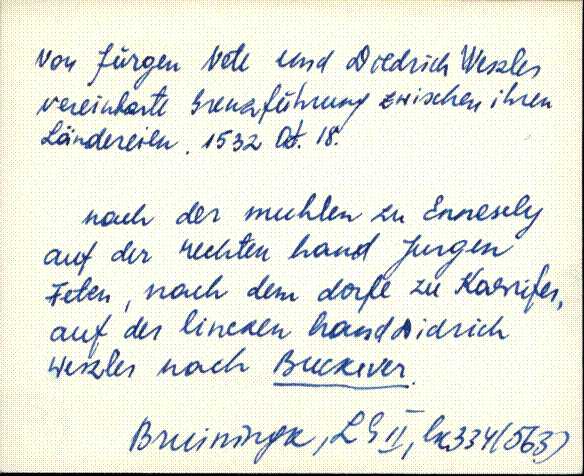 Von Jürgen Vete und Diedrich Weszles
vereinbarte Grenzführung zwischen ihren
Ländereien. 1532 Okt. 18.
nach der muhlen zu Ennesely
auf der rechten hand Jurgen
Feten, nach dem dorfe zu
auf der lincken hand Didrich
Weszles nach Buckever.
Bruiningk, LG II, 334 (563)